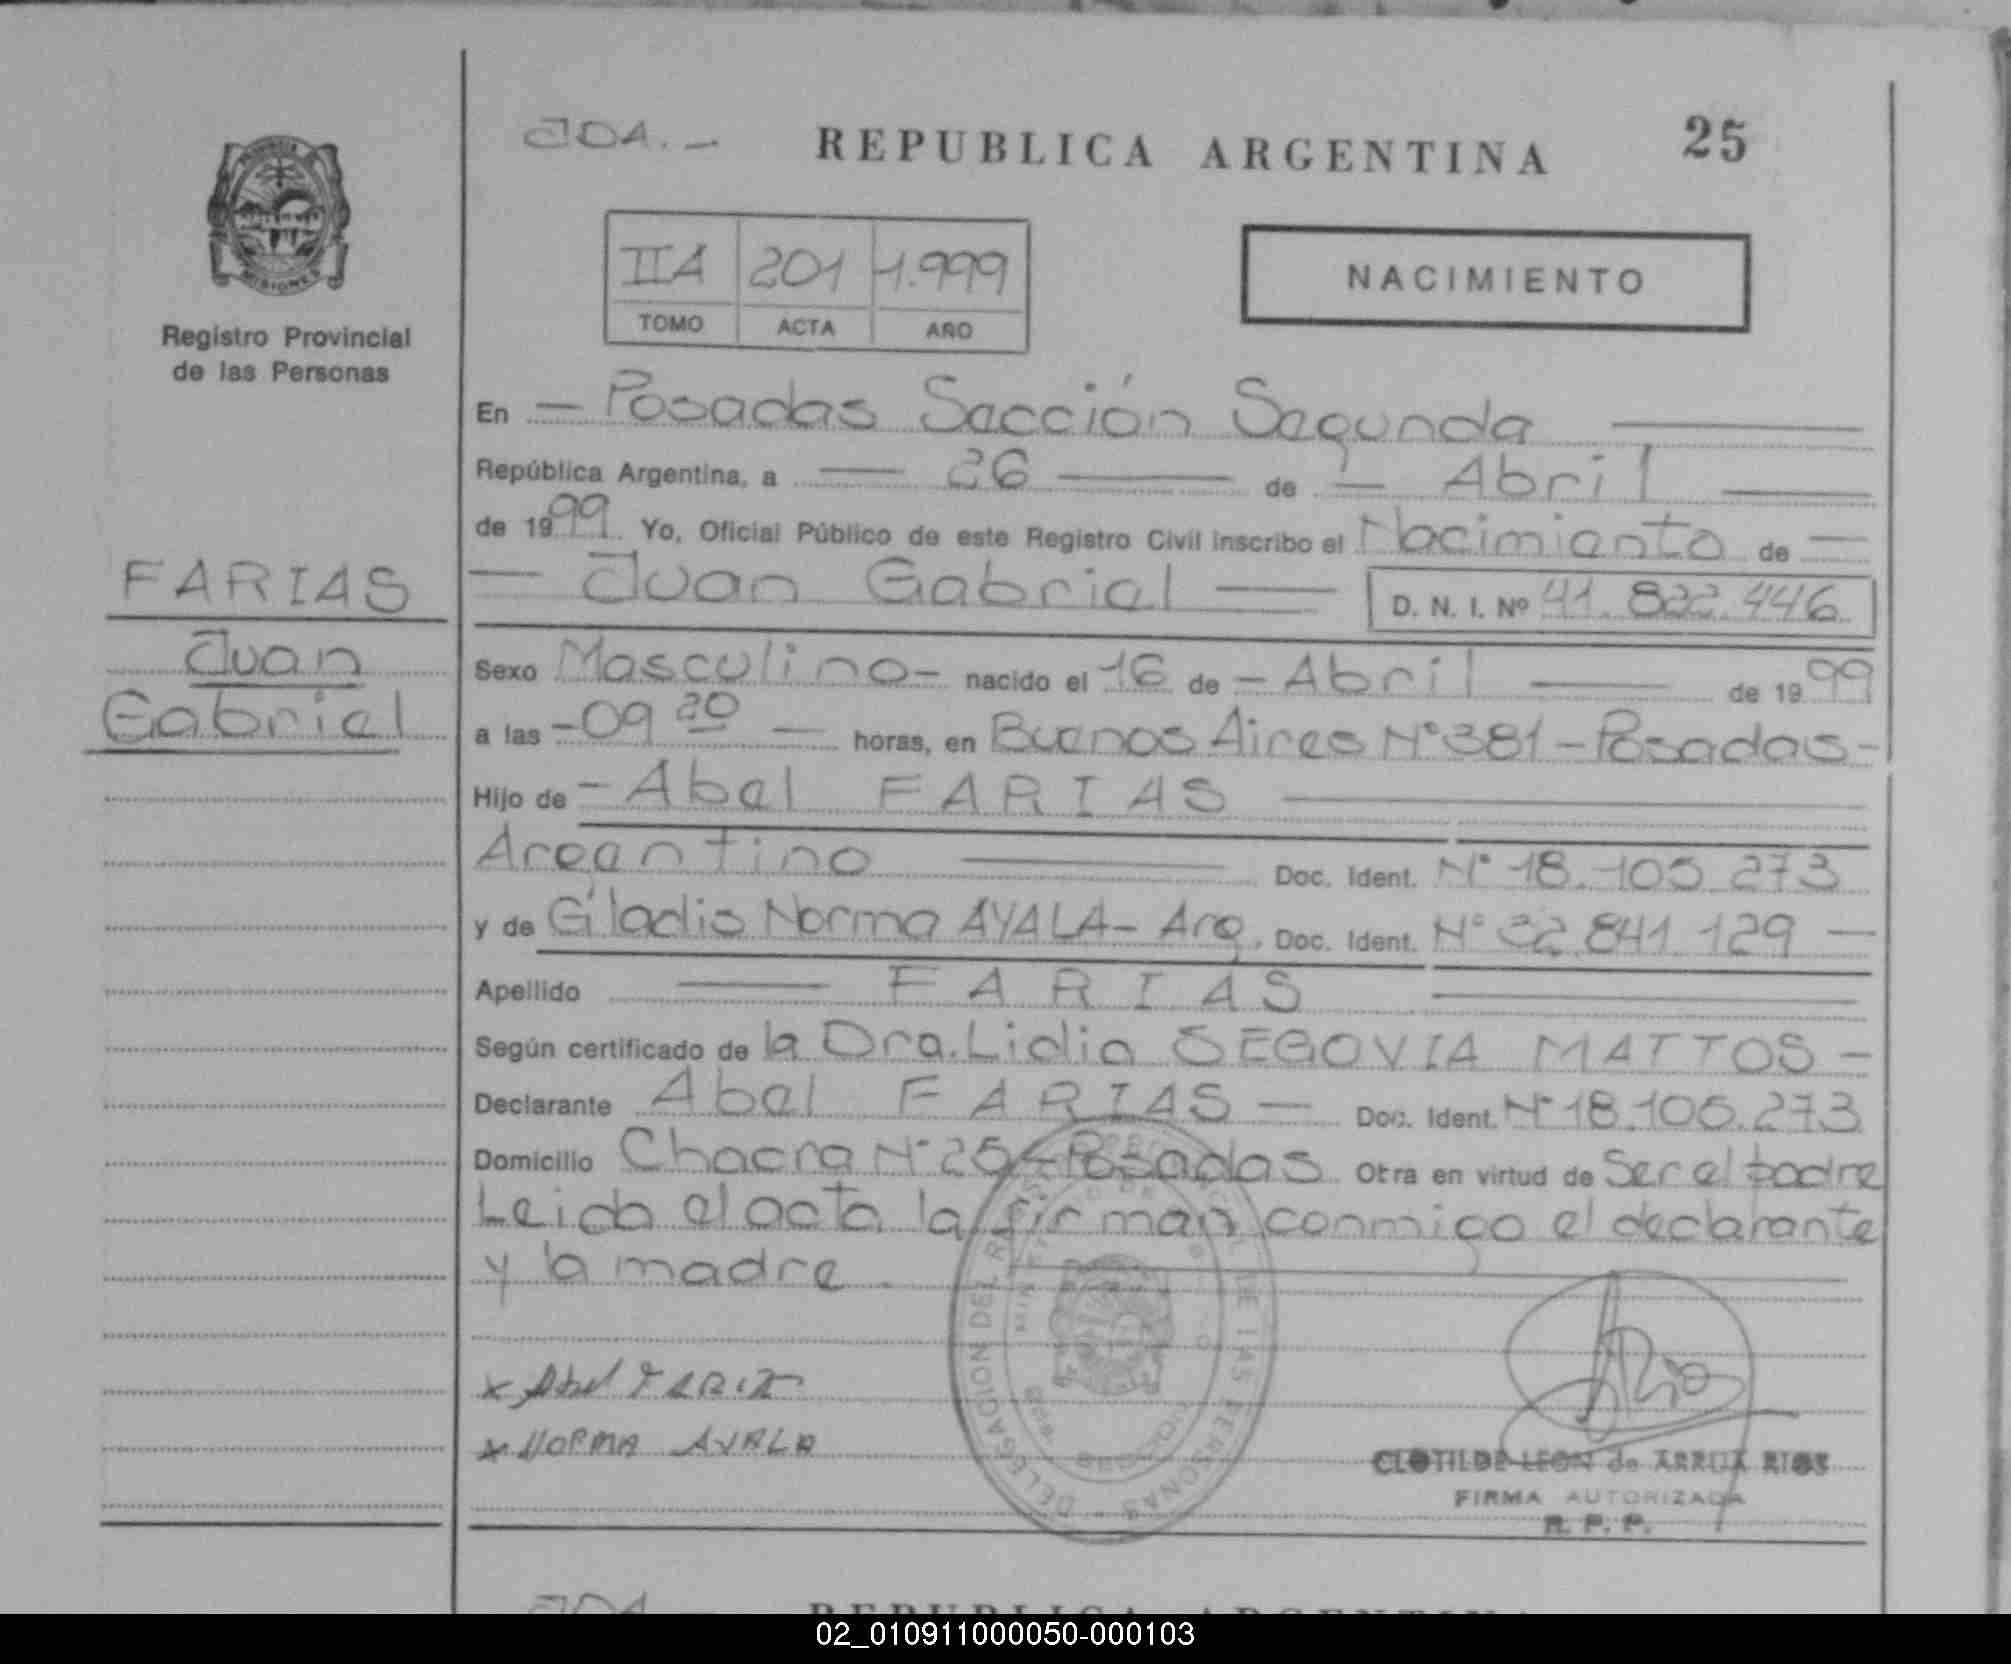 JDA.-
REPUBLICA ARGENTINA
25
IIA 201 1.999
TOMO ACTA AÑO
NACIMIENTO
MISIONES
Registro Provincial
de las Personas
En — Posadas Sección Segunda —
República Argentina, a — 26 — de — Abril —
de 1999 Yo, Oficial Público de este Registro Civil inscribo el Nacimiento de —
— Juan Gabriel — D. N. I. Nº 41.822.446
FARIAS
Juan
Gabriel
Sexo Masculino- nacido el 16 de - Abril — de 1999
a las -09 20 — horas, en Buenos Aires Nº381-Posadas-
Hijo de - Abel FARIAS —
Argentino — Doc. Ident. Nº 18.105.273
y de Gladis Norma AYALA- Arg. Doc. Ident. Nº 22.841.129 —
Apellido — FARIAS —
Según certificado de la Dra. Lidia SEGOVIA MATTOS -
Declarante Abel FARIAS — Doc. Ident. Nº 18.105.273
Domicilio Chacra Nº 25-Posadas Otra en virtud de Ser el padre
Leida el acta la firman conmigo el declarante
y la madre.
x Abel
x NORMA AYALA
DELEGACION DEL REGISTRO PROVINCIAL DE LAS PERSONAS
CLOTILDE LEON de ARRUA RIOS
FIRMA AUTORIZADA
R. P. P.
JDA
REPUBLICA ARGENTINA
02_010911000050-000103